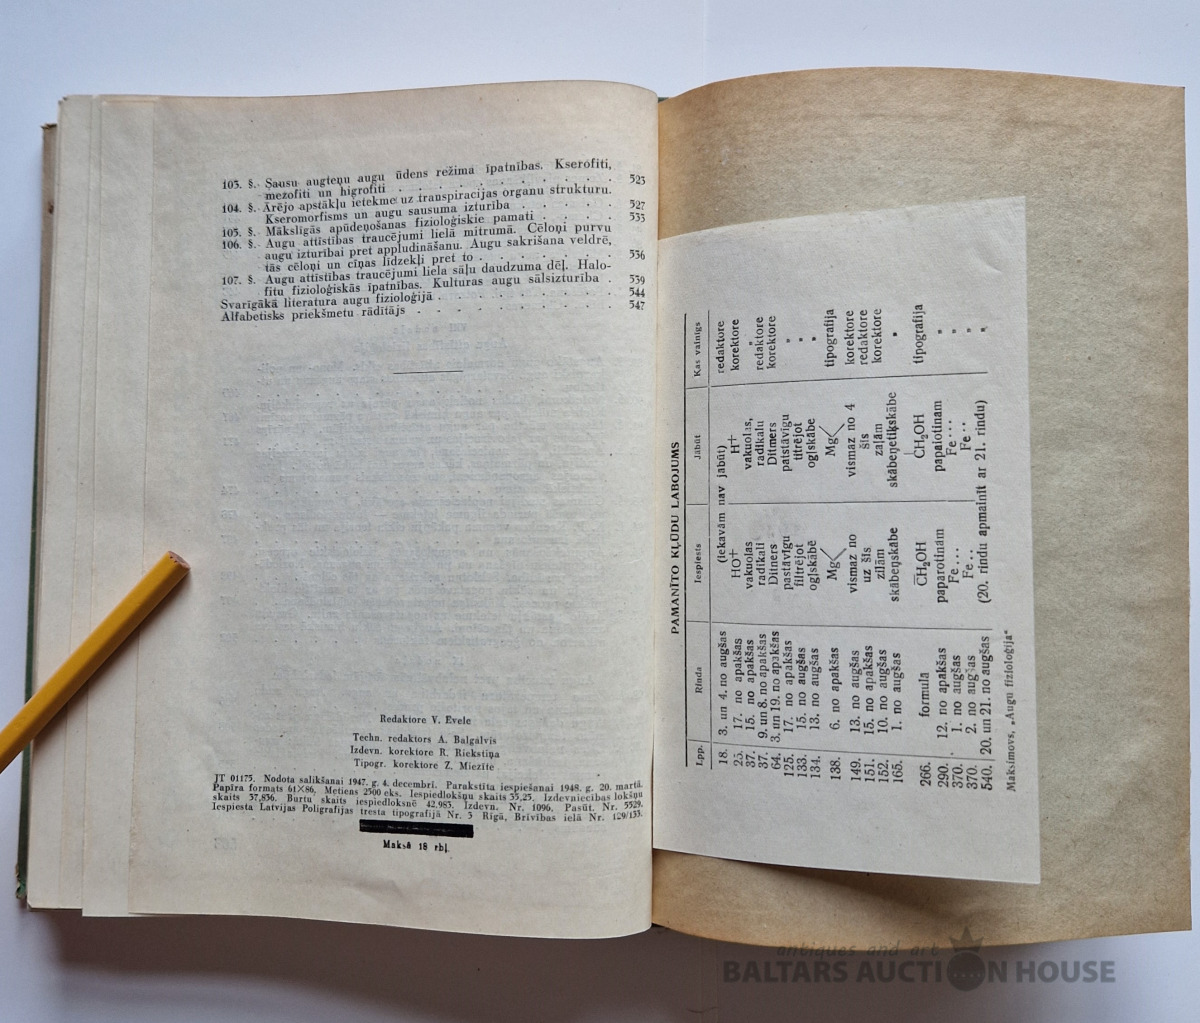 103. §. Sausu augteņu augu ūdens režima īpatnības. Kserofiti,
mezofiti un higrofiti . . . . . . . . . . 523
104. §. Ārējo apstākļu ietekme uz transpirācijas orgānu struktūru.
Kseromorfisms un augu sausuma izturība . . . . . 527
105. §. Mākslīgās apūdeņošanas fizioloģiskie pamati . . . . 533
106. §. Augu attīstības traucējumi lielā mitrumā. Cēloņi purvu
augu izturībai pret appludināšanu. Augu sakrišana veldrē,
tās cēloņi un cīņas līdzekļi pret to . . . . . . 536
107. §. Augu attīstības traucējumi liela sāļu daudzuma dēļ. Halo-
fitu fizioloģiskās īpatnības. Kultūras augu sālsizturība . 539
Svarīgākā literatūra augu fizioloģijā . . . . . . . . 544
Alfabetisks priekšmetu rādītājs . . . . . . . . . 547
Redaktore V. Evele
Techn. redaktors A. Balgalvis
Izdevn. korektore R. Riekstiņa
Tipogr. korektore Z. Miezīte
JT 01175. Nodota salikšanai 1947. g. 4. decembrī. Parakstīta iespiešanai 1948. g. 20. martā.
Papīra formāts 61×86. Metiens 2500 eks. Iespiedlokšņu skaits 35,25. Izdevniecības lokšņu
skaits 37,836. Burtu skaits iespiedloksnē 42,983. Izdevn. Nr. 1096. Pasūt. Nr. 5529.
Iespiesta Latvijas Poligrafijas tresta tipografijā Nr. 3 Rīgā, Brīvības ielā Nr. 129/133.
Maksā 18 rbļ.
PAMANĪTO KĻŪDU LABOJUMS
Lpp. Rinda Iespiests Jābūt Kas vainīgs
18. 3. un 4. no augšas (iekavām nav jābūt) redaktore
25. 17. no apakšas HO+ H+ korektore
37. 15. no apakšas vakuolas vakuolas, „
37. 9. un 8. no apakšas radikāli radikālu redaktore
64. 3. un 19. no apakšas Ditners Ditmers korektore
125. 17. no apakšas pastāvīgu patstāvīgu „
133. 15. no augšas filtrējot titrējot „
134. 13. no augšas ogļskābē ogļskābe „
138. 6. no apakšas Mg< Mg< tipografija
149. 13. no augšas vismaz no vismaz no 4 korektore
151. 15. no apakšas uz šis šis redaktore
152. 10. no augšas zilām zaļām korektore
165. 1. no augšas skābeņskābe skābeņetiķskābe „
266. formula CH2OH CH2OH tipografija
290. 12. no apakšas paparotinam papaiotinam „
370. 1. no augšas Fe... Fe... „
370. 2. no augšas Fe.. Fe.. „
540. 20. un 21. no augšas (20. rindu apmainīt ar 21. rindu) „
Maksimovs, „Augu fizioloģija"
antiques and art
BALTARS AUCTION HOUSE